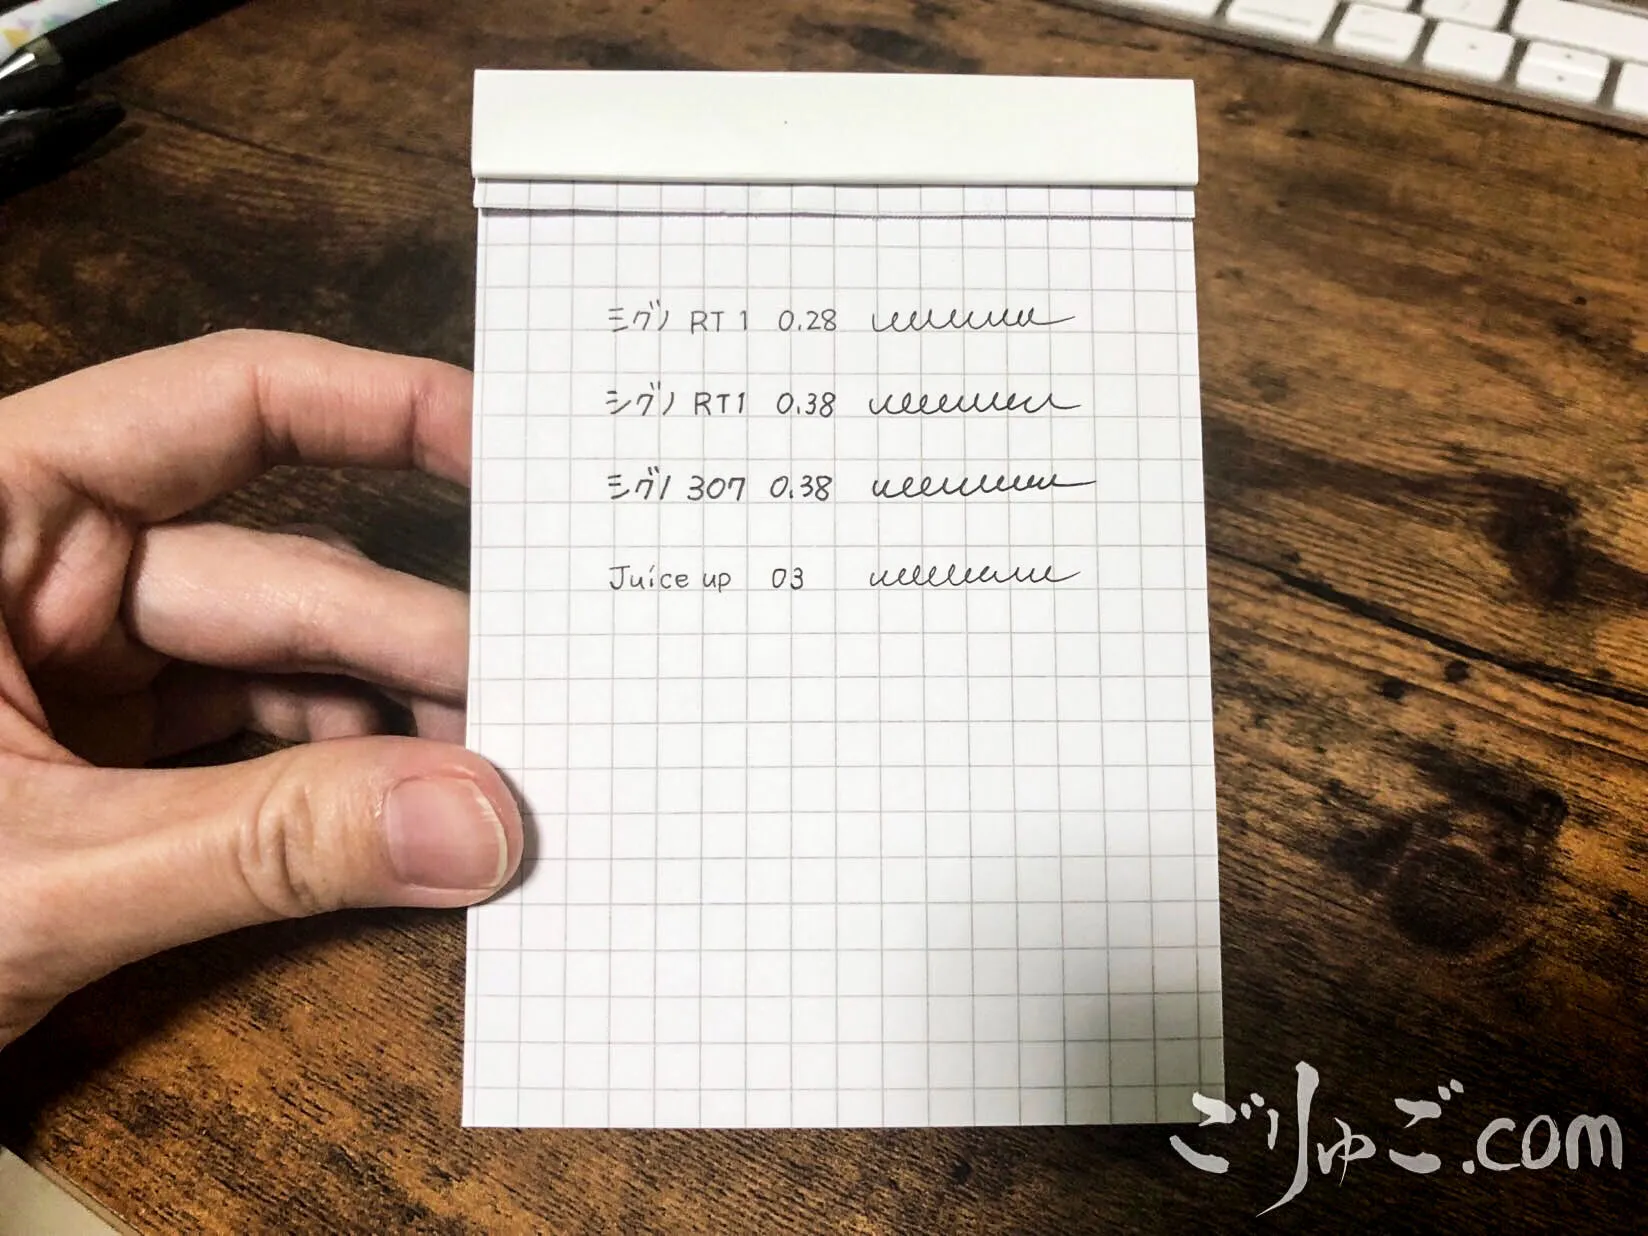 シグノ RT1 0.28
シグノ RT1 0.38
シグノ 307 0.38
Juice up 03
ごりゅご.com